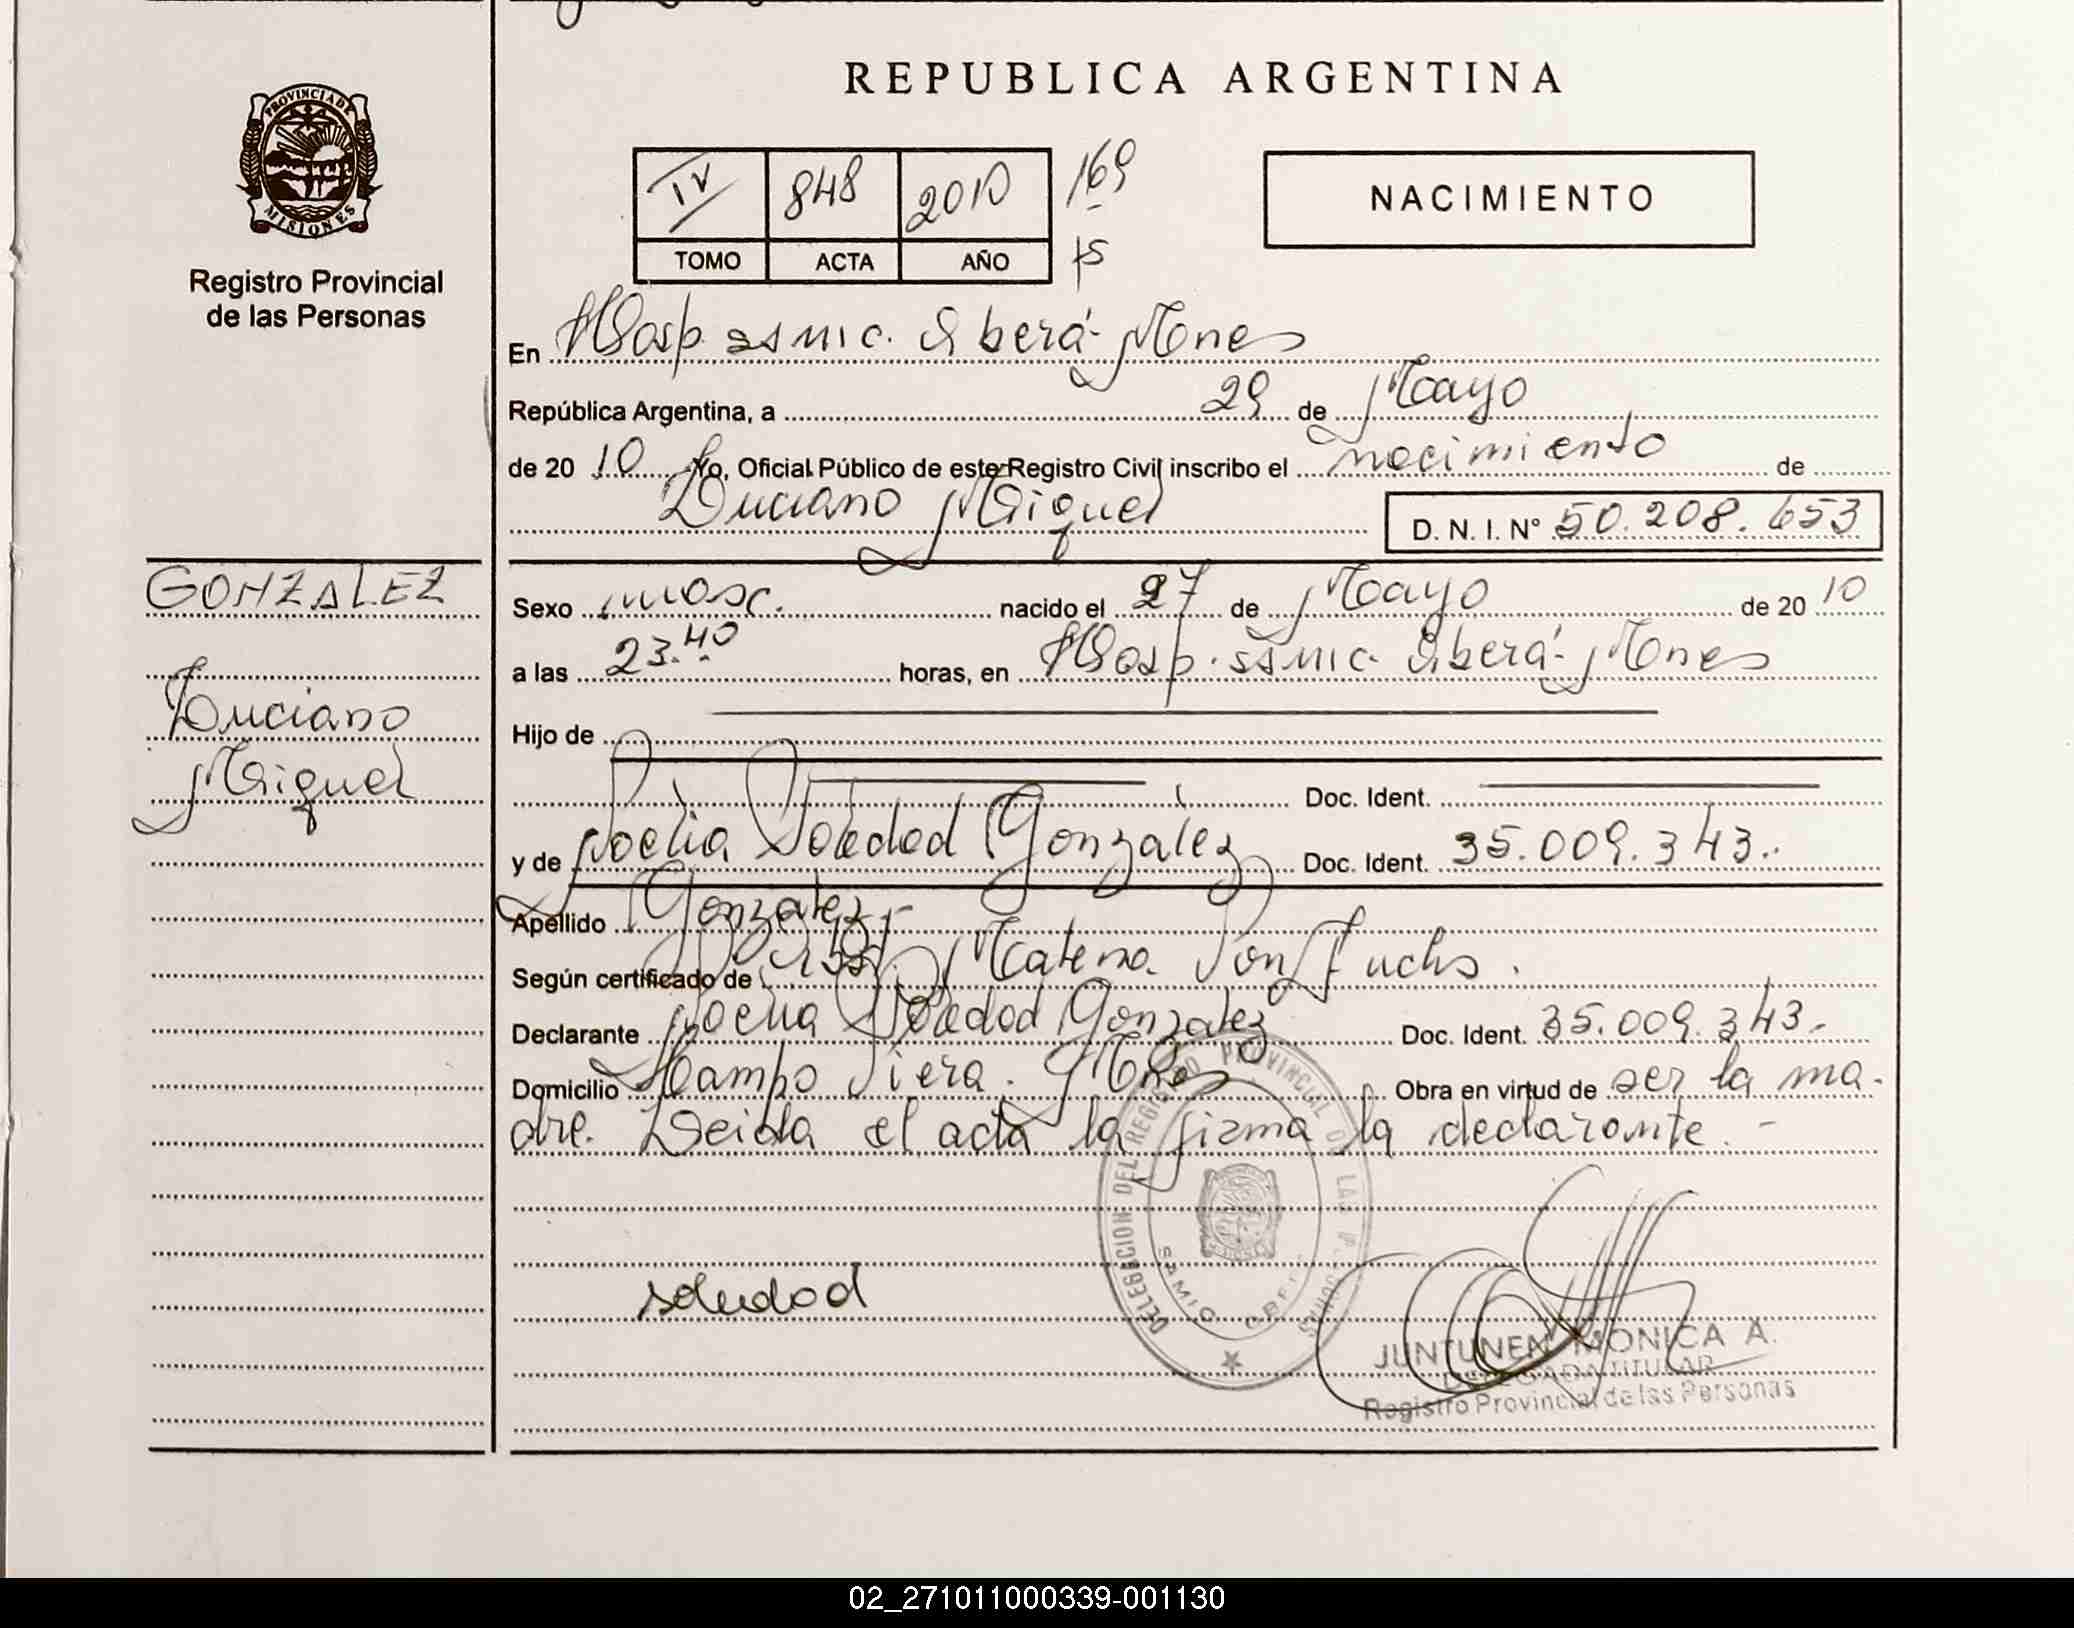 REPUBLICA ARGENTINA
PROVINCIA DE MISIONES
Registro Provincial
de las Personas
IV 848 2010 169
TOMO ACTA AÑO fs
NACIMIENTO
En Hosp. ssmic. Oberá - Mnes
República Argentina, a 29 de Mayo
de 2010 Yo, Oficial Público de este Registro Civil inscribo el nacimiento de
Luciano Miguel D. N. I. N° 50.208.653
GONZALEZ
Luciano
Miguel
Sexo masc. nacido el 27 de Mayo de 2010
a las 23.40 horas, en Hosp. ssmic. Oberá - Mnes
Hijo de
Doc. Ident.
y de Noelia Soledad González Doc. Ident. 35.009.343.
Apellido González -
Según certificado de Materno
Declarante Noelia Soledad González Doc. Ident. 35.009.343.
Domicilio Campo Viera. Mnes Obra en virtud de ser la ma-
dre. Leída el acta la firma la declarante. -
soledad
DELEGACION DEL REGISTRO PROVINCIAL DE LAS PERSONAS
JUNTUNEN MONICA A.
DELEGADA TITULAR
Registro Provincial de las Personas
02_271011000339-001130